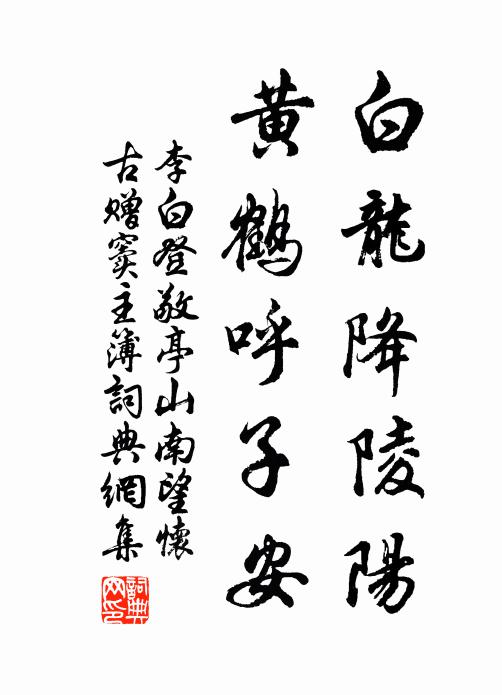 白龍降陵陽
黃鶴呼子安
李白登敬亭山南望懷
古贈竇主簿詞典網集
詞典
网印